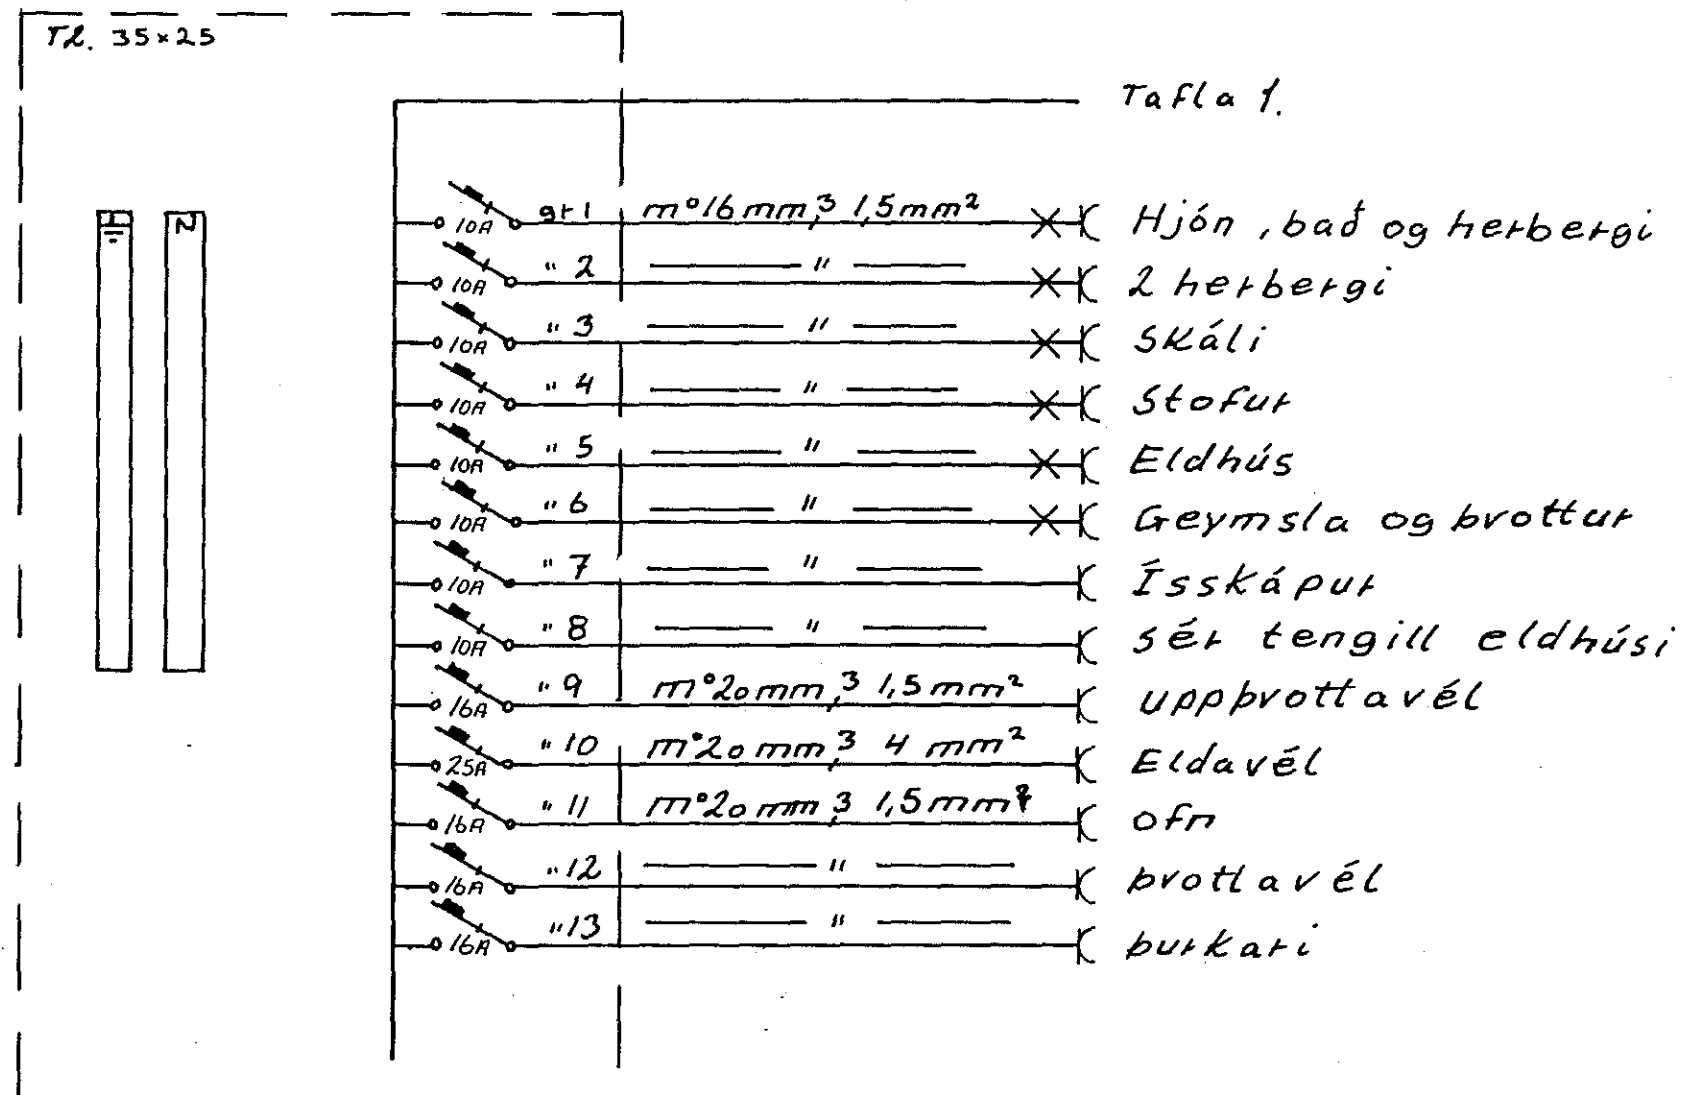 Tl. 35×25
Tafla 1.
N
10A gr 1 m°16mm, 3 1,5mm² Hjón, bað og herbergi
10A " 2 — " — 2 herbergi
10A " 3 — " — Skáli
10A " 4 — " — Stofur
10A " 5 — " — Eldhús
10A " 6 — " — Geymsla og þvottur
10A " 7 — " — Ísskápur
10A " 8 — " — Sér tengill eldhúsi
16A " 9 m°20mm, 3 1,5mm² uppþvottavél
25A " 10 m°20mm, 3 4 mm² Eldavél
16A " 11 m°20mm, 3 1,5mm² ofn
16A " 12 — " — þvottavél
16A " 13 — " — þurkari